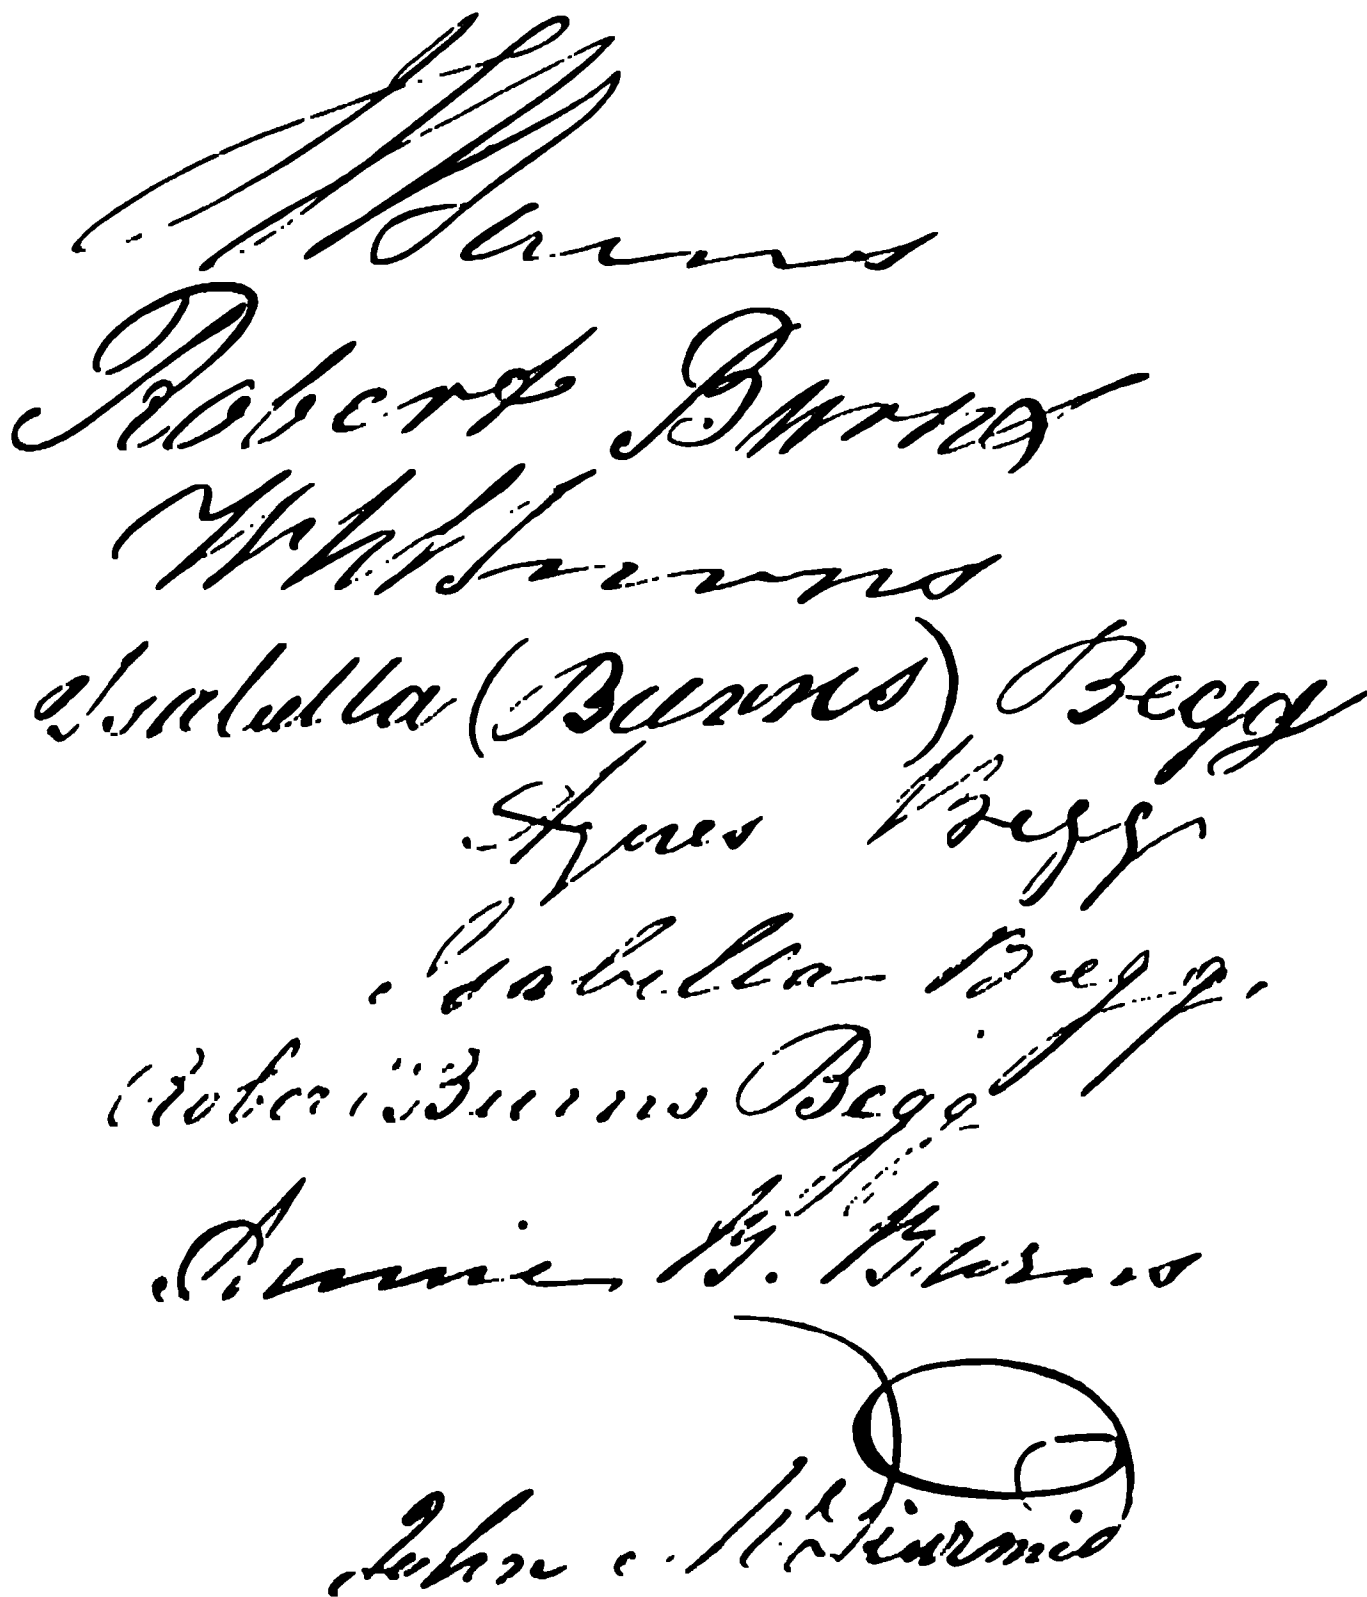 JG Burns
Robert Burns
W N Burns
Isabella (Burns) Begg
Agnes Begg
Isabella Begg.
Robert Burns Begg
Annie B. Burns
John McDiarmid